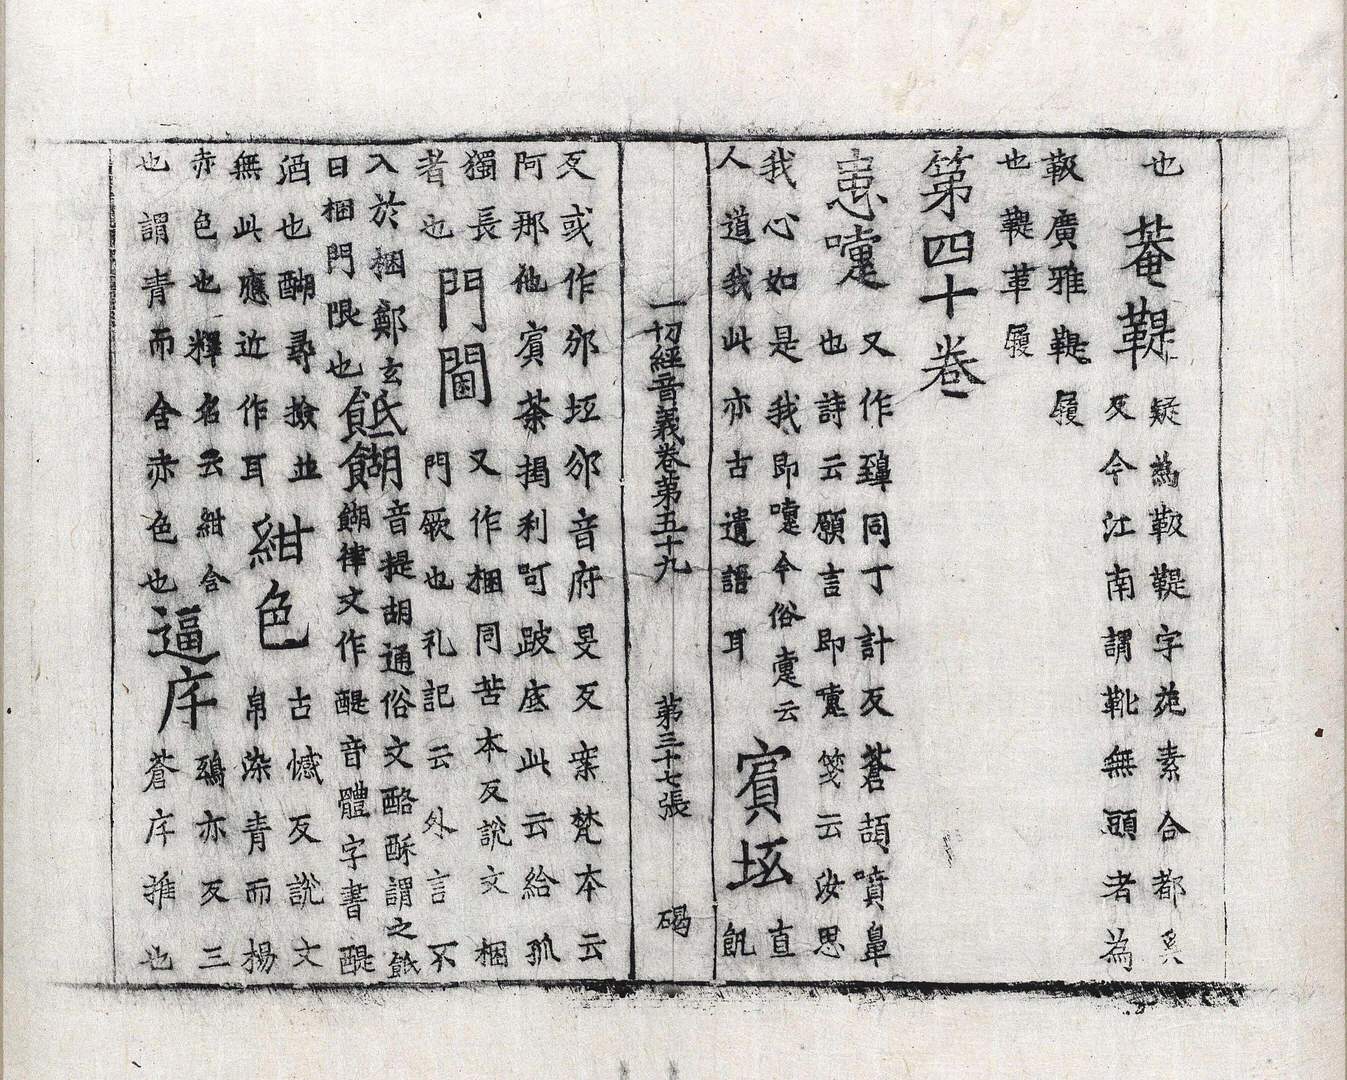 也菴鞮疑爲靸鞮字苑素合都奚
反今江南謂靴無頭者為
靸廣雅鞮履
也鞮革履
第四十卷
疐嚏又作𪖦同丁計反蒼頡噴鼻
也詩云願言即嚔箋云汝思
我心如是我即嚏今俗疐云
人道我此亦古遺語耳
賓坻直
飢
一切經音義卷第五十九 第三十七張 碣
反或作邠坻邠音府旻反案梵本云
阿那他賓荼揭利呵跛底此云給孤
獨長
者也
門閫又作梱同苦本反說文梱
門厥也礼記云外言不
入於梱鄭玄
曰梱門限也
䬫餬音提胡通俗文酪酥謂之䬫
餬律文作醍音體字書醍
酒也醐尋撿並
無此應近作耳
紺色古憾反說文
帛染青而楊
赤色也釋名云紺含
也謂青而含赤色也
逼序鵄亦反三
蒼序推也